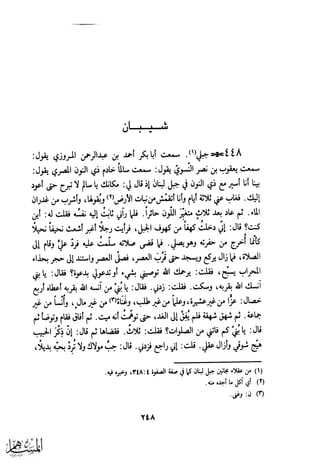 شـيـبـان
٤٤٨ جبلي(١). سمعت أبا بكر أحمد بن عبدالرحمن المروزي يقول:
سمعت يعقوب بن نصر النسوي يقول: سمعت سالمًا خادم ذي النون المصري يقول:
بينا أنا أسير مع ذي النون في جبل لبنان إذ قال لي: مكانك يا سالم لا تبرح حتى أعود
إليك. فغاب عني ثلاثة أيام وأنا أتقمش من نبات الأرض(٢) وبقولها، وأشرب من غدران
الماء. ثم عاد بعد ثلاث متغير اللون حائرًا. فلما رآني ثابت إليه نفسه فقلت له: أين
كنت؟ قال: إني دخلت كهفًا من كهوف الجبل، فرأيت رجلًا أغبر أشعث نحيفًا نحيلًا
كأنما أخرج من حفرته وهو يصلي. فلما قضى صلاته سلمت عليه فرد علي وقام إلى
الصلاة، فما زال يركع ويسجد حتى قرب العصر، فصلى العصر واستند إلى حجر بحذاء
المحراب يسبح، فقلت: يرحمك الله توصيني بشيء أو تدعو لي بدعوة؟ فقال: يا بني
آنسك الله بقربه، وسكت. فقلت: زدني. فقال: يا بني من آنسه الله بقربه أعطاه أربع
خصال: عزًا من غير عشيرة، وعلمًا من غير طلب، وغناءً(٣) من غير مال، وأنسًا من غير
جماعة. ثم شهق شهقة فلم يفق إلى الغد، حتى توهمت أنه ميت. ثم أفاق فقام وتوضأ ثم
قال: يا بني كم فاتني من الصلوات؟ فقلت: ثلاث. فقضاها ثم قال: إن ذكر الحبيب
هيج شوقي وأزال عقلي. قلت: إني راجع فزدني. قال: حب مولاك ولا ترد بحبه بديلًا،
(١) من عقلاء مجانين جبل لبنان كما في صفة الصفوة ٣٤٨:٤، وخبره فيه.
(٢) أي آكل ما أجده منه.
(٣) ن: وغنى.
٢٤٨